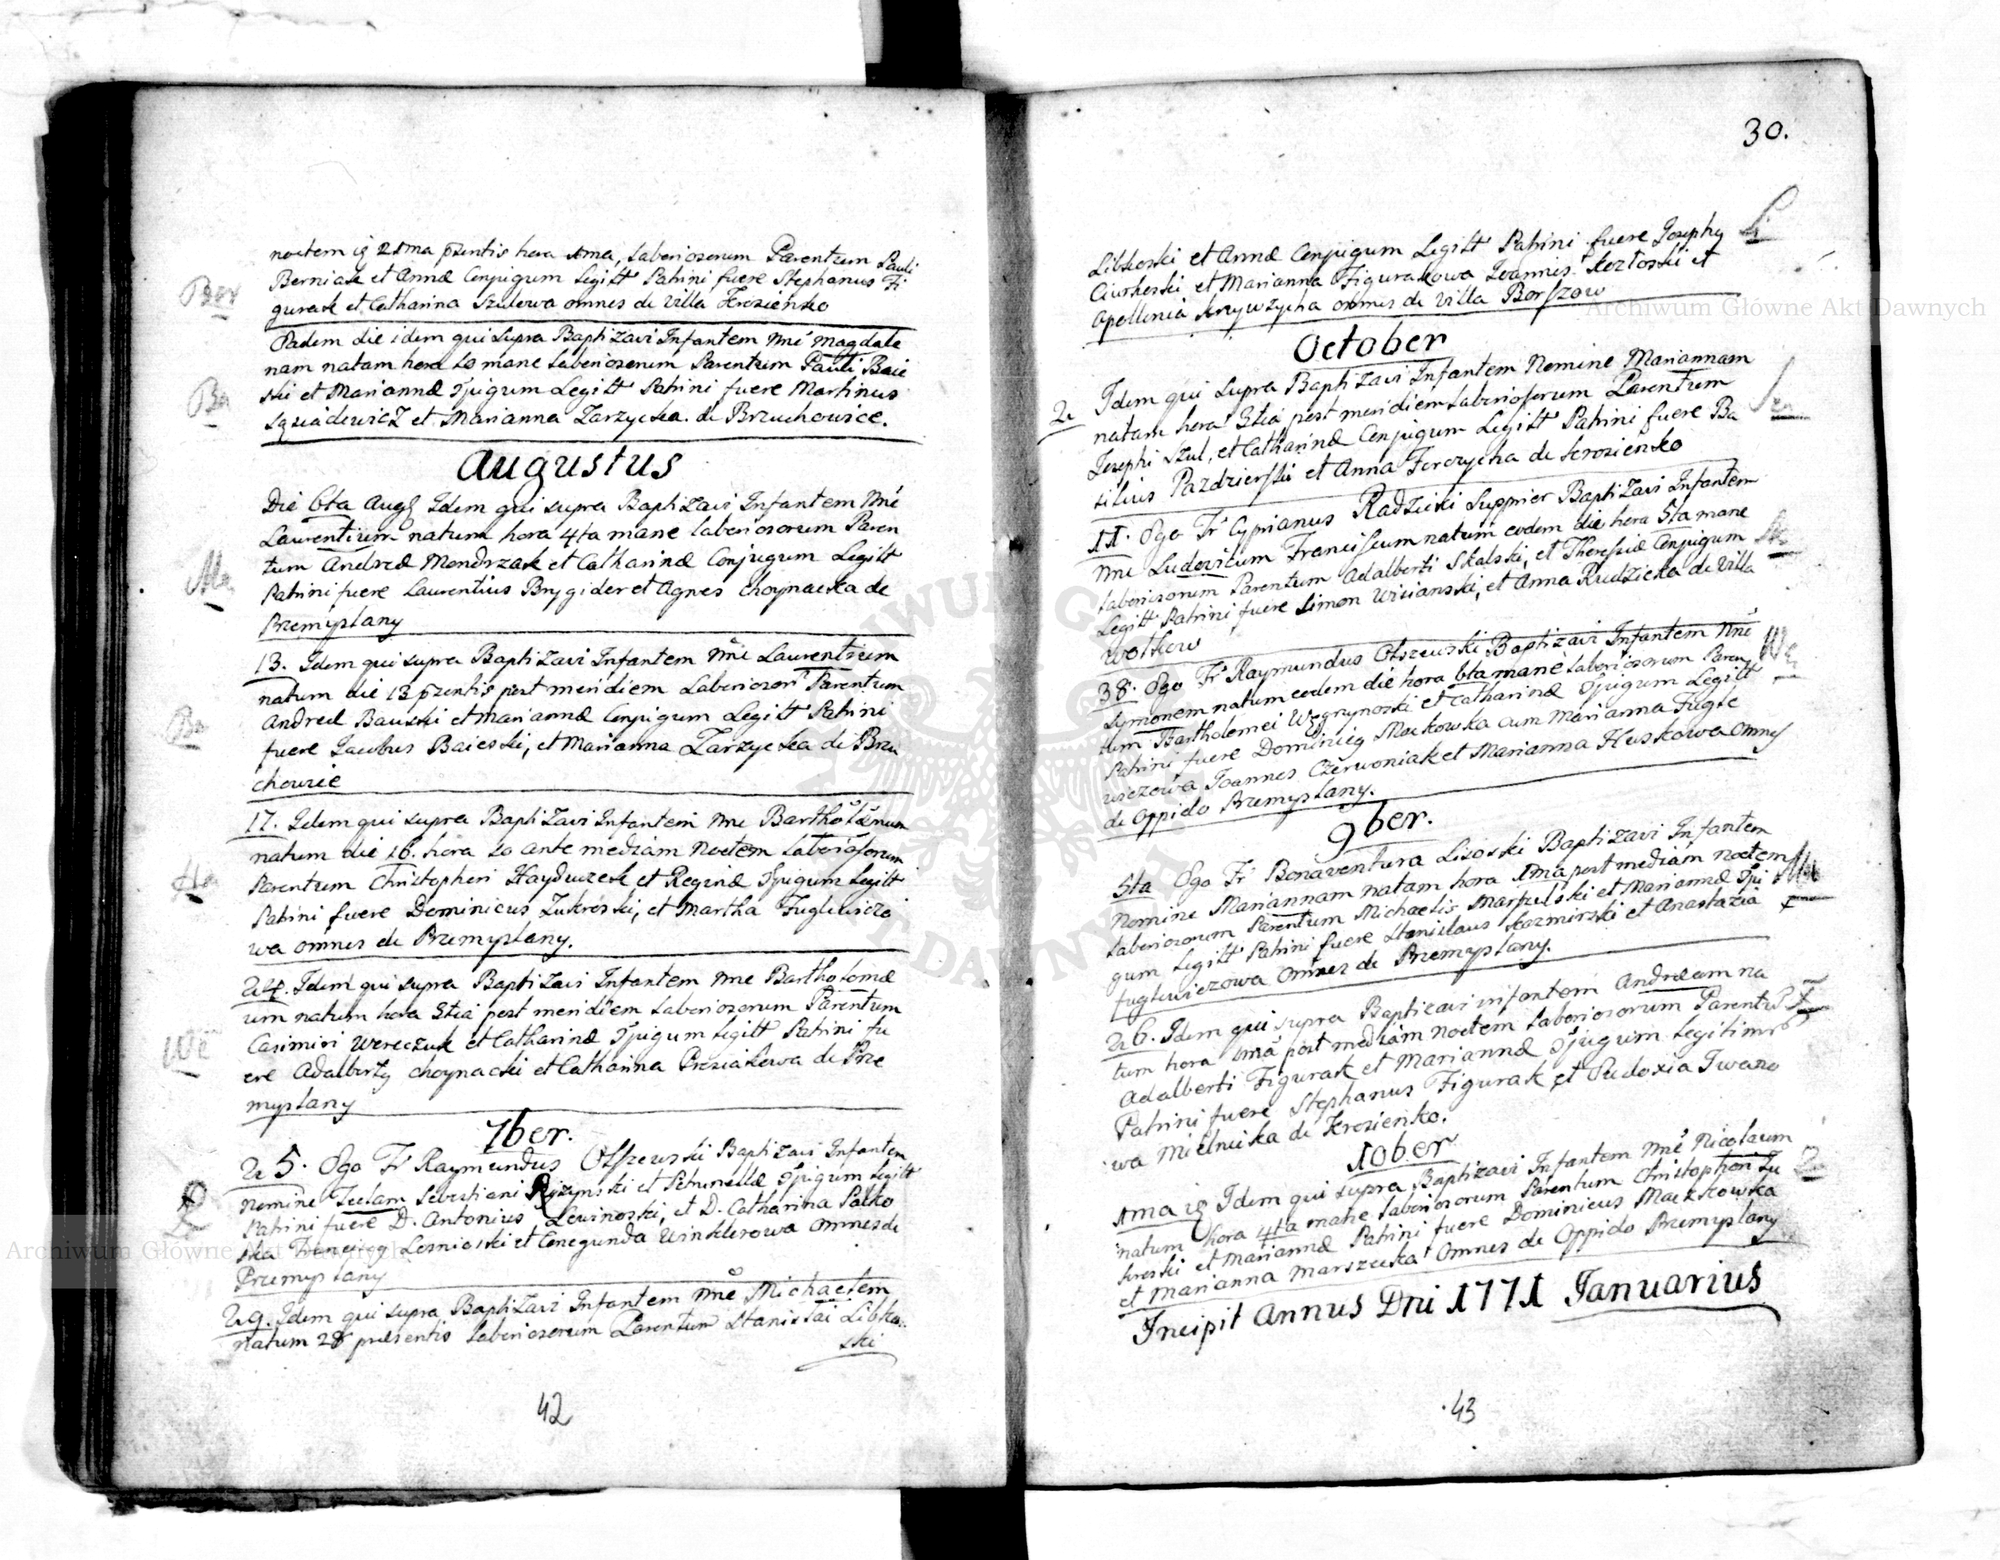 noctem ig 21ma pzentis hora 1ma, Laboriosorum Parentum Pauli
Ber
Berniak et Annæ Conjugum Legitt Patrini fuere Stephanus Fi
gurak et Catharina Szulowa omnes de Villa Krosienko
Eadem die idem qui supra BaptiZavi Infantem Nne Magdale
nam natam hora 10 mane Laboriosorum Parentum Pauli Baie
Ba
ski et Mariannæ Ojugum Legitt Patrini fuere Martinus
Sąsiadowicz et Marianna Zarzycka de Brzuchowice.
Augustus
Die 6ta Augs Idem qui supra BaptiZavi Infantem Nne
Laurentium natum hora 4ta mane laboriosorum Paren
tum Andreæ Mondrzak et Catharinæ Conjugum Legitt
Patrini fuere Laurentius Brygider et Agnes Choynacka de
Przemyslany
13. Idem qui supra BaptiZavi Infantem Nne Laurentium
natum die 13 pzentis post meridiem Laborioso Parentum
Ba
Andreæ Bauski et Mariannæ Conjugum Legitt Patrini
fuere Jacobus Baieski, et Marianna Zarzycka de Brzu
chowice
17. Idem qui supra BaptiZavi Infantem Nne Bartholomeum
natum die 16. hora 10 ante mediam Noctem Laboriosorum
Ha
Parentum Christopheri Hayduczek et Reginæ Ojugum Legitt
Patrini fuere Dominicus Zukroski, et Martha Fuglewiczo
wa omnes de Przemyslany.
24. Idem qui supra BaptiZavi Infantem Nne Bartholomæ
um natum hora 3tia post meridiem Laboriosorum Parentum
We
Casimiri Wereczuk et Catharinæ Ojugum Legitt Patrini fu
ere Adalbertg Choynacki et Catharina Presiakowa de Prze
myslany
7ber.
25. Ego Fr Raymundus Olszewski BaptiZavi Infantem
Nomine Teclam Sebestiani Ryzynski et Petrunellæ Ojugum Legitt
R
Patrini fuere D. Antonius Lewinoski, et D. Catharina Palko
ska Francisg Lesnioski et Conegunda Winklerowa omnes de
Przemyslany
29. Idem qui supra BaptiZavi Infantem Nne Michaelem
natum 28 presentis laboriosorum Parentum Stanislai Libko
ski
42
30.
Libkoski et Annæ Conjugum Legitt Patrini fuere Josephg
Li
Ciurkoski et Marianna Figurakowa Joannis Kozłoski et
Apollinia Krzywzycha omnes de Villa Borszow
October
2 Idem qui supra BaptiZavi Infantem Nomine Mariannam
natam hora 3tia post meridiem Laboriosorum Parentum
Josephi Szul, et Catharinæ Conjugum Legitt Patrini fuere Ba
silius Pazdzierski et Anna Ferczycha de Krosienko
11. Ego Fr Cyprianus Radzicki Supprier BaptiZavi Infantem
Nne Ludovicum Franciscum natum eodem die hora 5ta mane
Laboriosorum Parentum Adalberti Skalski, et Theresiæ Conjugum
Legitt Patrini fuere Simon Wisianski, et Anna Rudzicka de Villa
Wolkow
38. Ego Fr Raymundus Olszewski Baptizavi Infantem Nne
We
Symonem natum eodem die hora 6ta mane Laboriosorum Paren
tum Bartholomei Węgrynoski et Catharinæ Ojugum Legitt
Patrini fuere Dominicg Mackowska cum Marianna Fugle
wiczowa Joannes Czerwoniak et Marianna Huskowa omnes
de Oppido Przemyslany.
9ber.
5ta Ego Fr Bonaventura Lisoski BaptiZavi Infantem
Nomine Mariannam natam hora 1ma post mediam noctem
Laboriosorum Parentum Michaelis Marszelski et Mariannæ Oju
gum Legitt Patrini fuere Stanislaus Kazmirski et Anastazia
Fuglewiczowa omnes de Przemyslany.
26. Idem qui supra Baptizavi infantem Andream na
tum hora 1ma post mediam noctem Laboriosorum Parentu
Adalberti Figurak et Mariannæ Ojugum Legitimo
Patrini fuere Stephanus Figurak et Eudoxia Iwano
wa Mielnicka de Krosienko.
10ber
1ma ig Idem qui supra Baptizavi Infantem Nne Nicolaum
Zu
natum hora 4ta mane Laboriosorum Parentum Christopheri Zu
kroski et Mariannæ Patrini fuere Dominicus Mackkowska
et Marianna Marszelska omnes de Oppido Przemyslany
Incipit Annus Dni 1771 Januarius
43
Archiwum Główne Akt Dawnych
Archiwum Główne Akt Dawnych